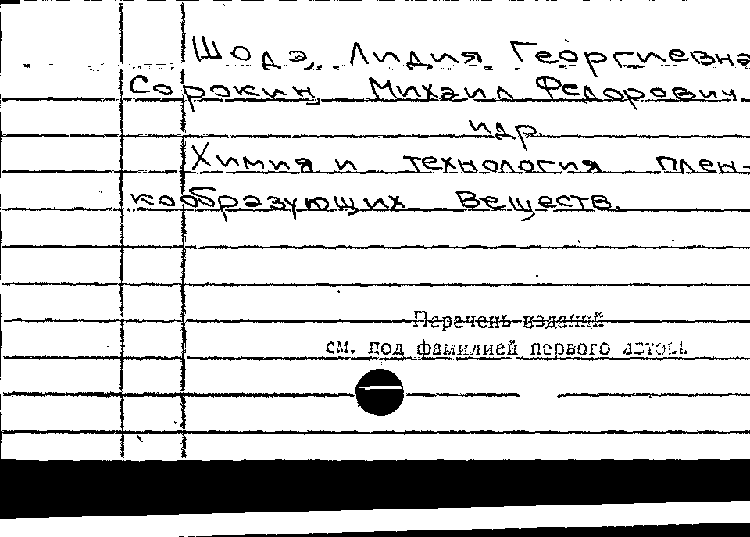 Шодэ, Лидия Георгиевна
Сорокин, Михаил Федорович
и др
Химия и технология плен-
кообразующих веществ.
Перечень изданий
см. под фамилией первого автора